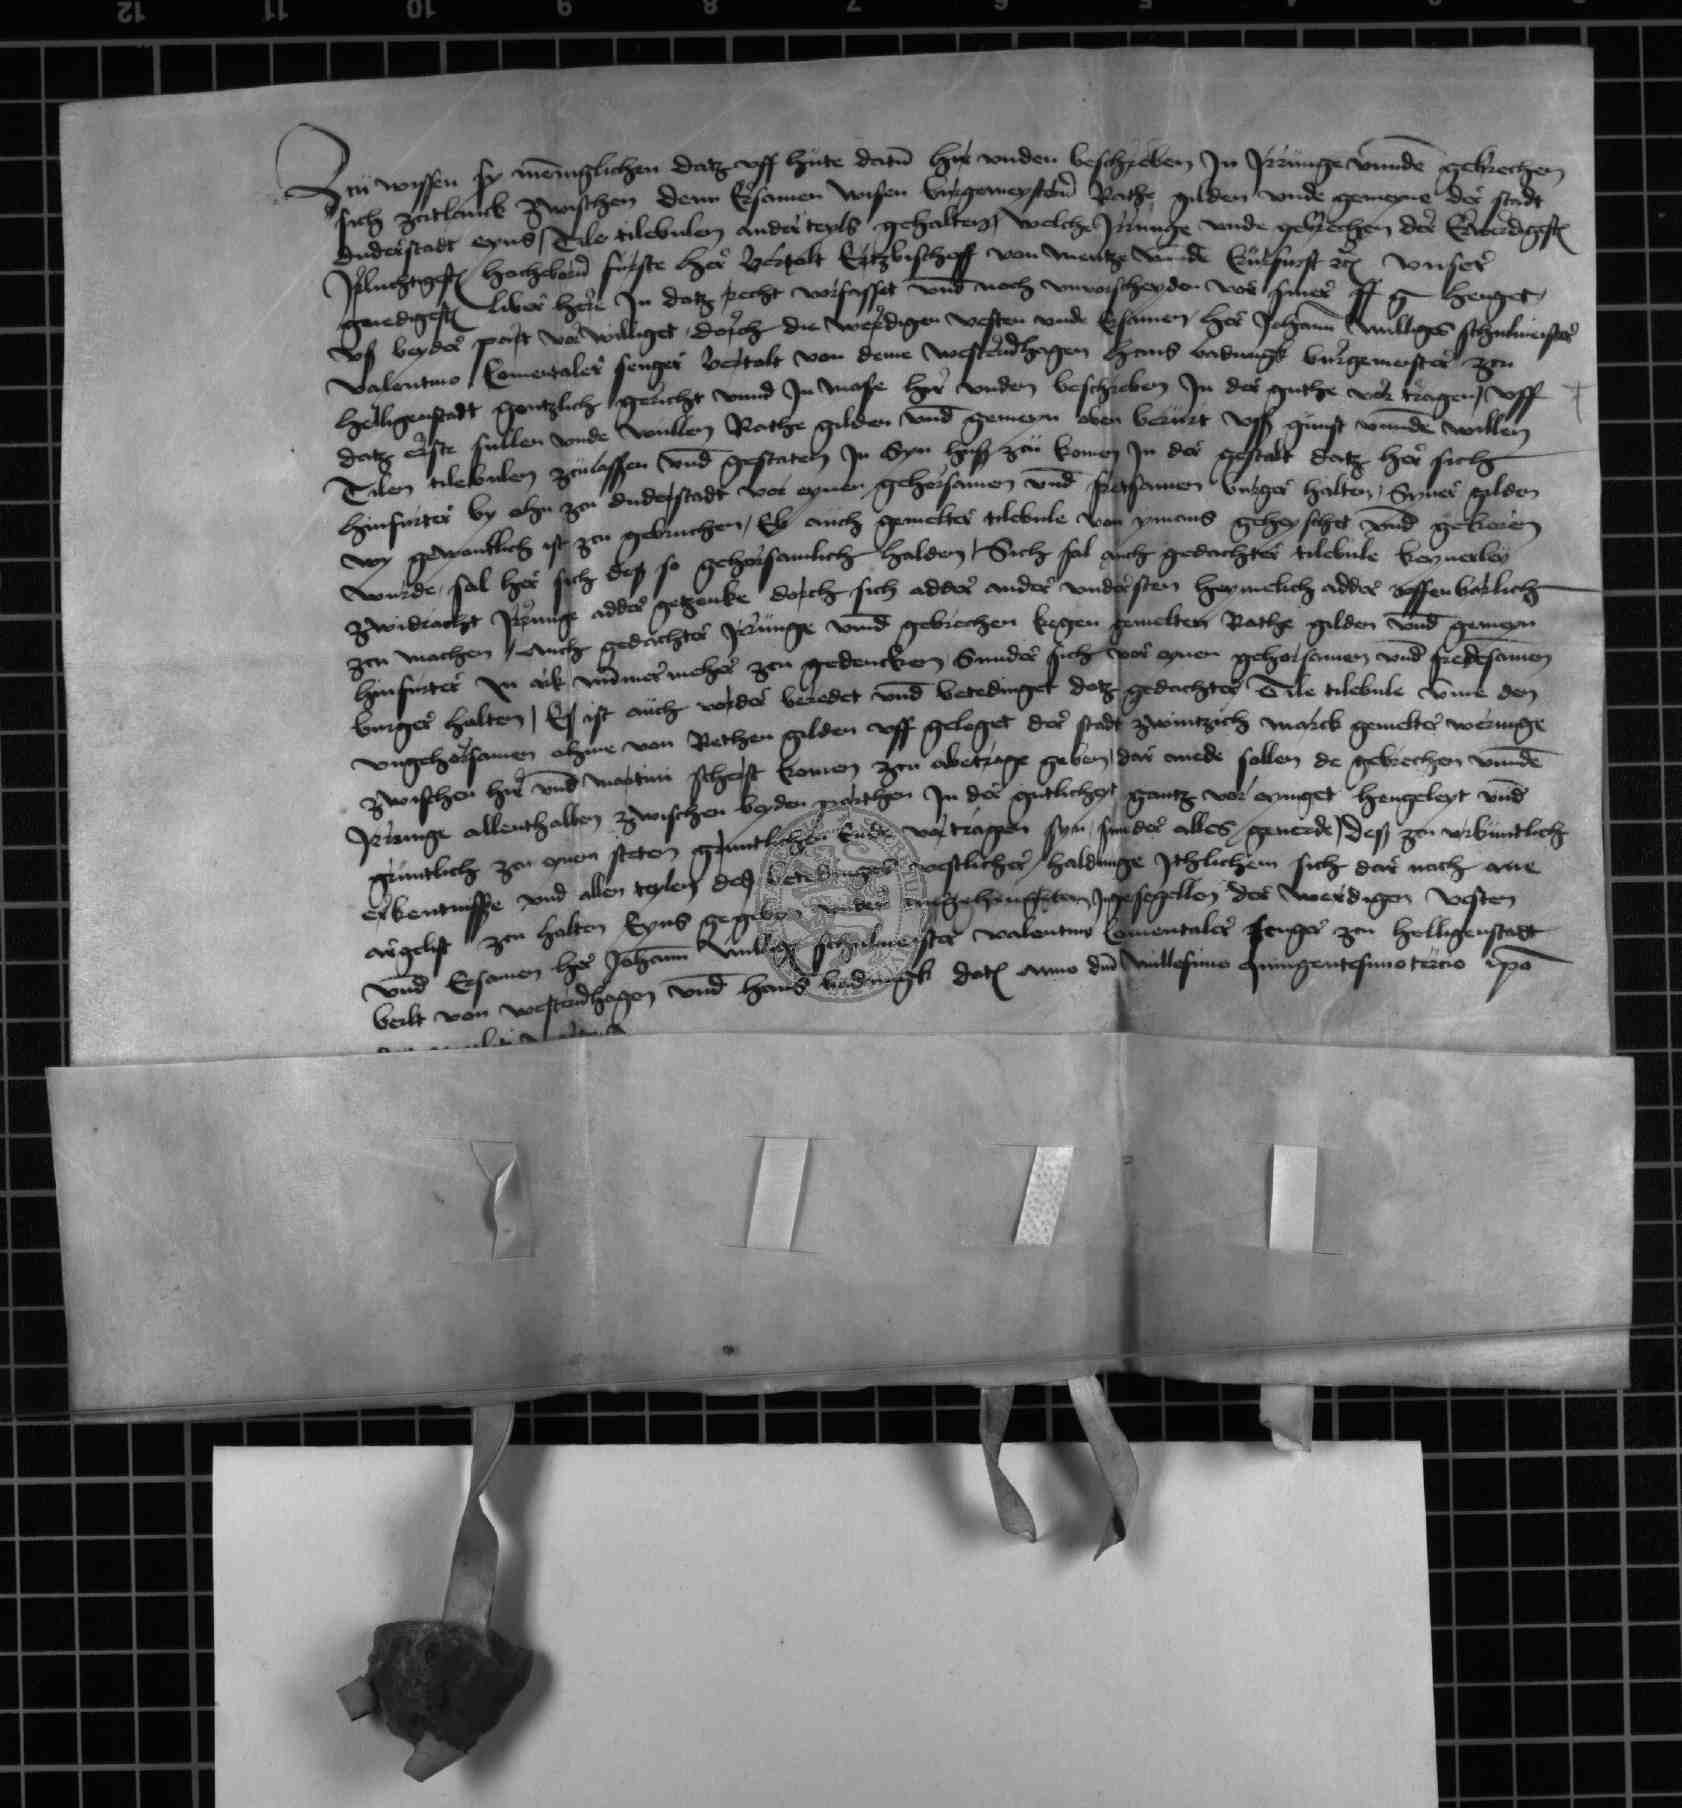 12 11 10 9 8 7 6 5
Zcu wyssen sy menniglichen datz uff hute datū hir unden beschreben In Jrrunge unnde gebrechen
sich zcitlanck zwischen denn Ersamen wisen Burgemeystern Rathe gilden unde gemeyne der stadt
duderstadt eyns / Tile tilebulen ander teyls gehalten / welche Jrrunge unde gebrechen der Erwerdigest
Jrluchtigest hocheborn furste her Bertolt Ertzbischoff von Mentze unnde kurfurst unser
genedigest liber here In datz recht vorfasset und noch unvorscheyden vor siner ff g henget
uß beyder part vorwilliget dorch die werdigen vesten unde Ersamen her Johann schulmeister
valentino senger Bertolt von deme westernhagen hans burgemeister zcu
helligenstadt gentzlich gericht unnd In mase hir unden beschreben In der guthe vor tragen / uff
datz erste sullen unde wullen Rathe gilden und gemeyn oben berurt uß gunst unnde willen
Tilen tilebulen zculassen und gestaten In syn huß zcu komen In der gestalt datz her sich
hinfurter by ehn zcu duderstadt vor eynen gehorsamen und fretsamen burger halten / Syner gilden
wy gewontlich ist zcu gebruchen / Eb auch gemelter tilebule von ymans geheyschet und
wurde sal her sich deß so gehorsamlich halden / Sich sal auch gedachter tilebule keynerley
zwidracht Jrrunge adder getzencke dorch sich adder ander understen heymelich adder offenbarlich
zcu machen / auch gedachter Jrrunge unnd gebrechen kegen gemelten Rathe gilden und gemeyn
hinfurter In ark nummer meher zcu gedencken / Sunder sich vor eynen gehorsamen und fredesamen
burger halten / Eß ist auch vorder beredet und betedinget datz gedachter Tile tilebule ume den
ungehorsamen ohme von Rethen gilden uff geleget der stadt zwintzich marck gemelter weringe
zwischen hir und martini schirst komen zcu abetrage geben / dar mede sollen de gebrechen unnde
Jrrunge allenthalben zwischen beyden parthen In der gutlicheyt gantz vor eyniget hengeleyt und
gruntlich zcu eynem steten gruntlichen Ende vortragen syn sunder alles geverde / Deß zcu urkuntlich
erkentnisse und allen teylen deß vestlicher haldunge Jtzlichem sich dar nach ane
argelist zcu halten Eyns gegeben under der werdigen vesten
und Ersamen her Johann schulmeister valentino senger zcu helligenstadt
berlt von westernhagen und hans dat anno dni Millesimo quingentesimo tercio